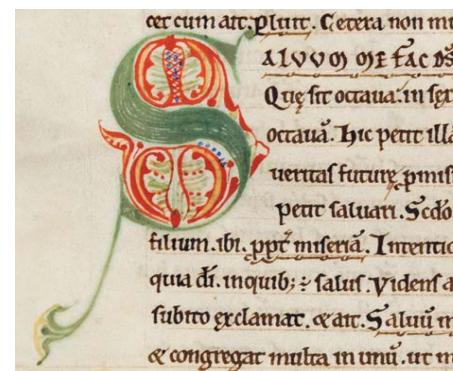 cet cum ait. pluit. Cetera non mu
SALVVM ME FAC DS̄
Quę sit octaua. in sex
octauā. Hic petit illā
ueritas futurę ꝓmis
petit saluari. Scd̄o
filium. ibi. ꝓpt̄ miseriā. Intentio
quia dn̄i. inquib; ÷ salus. Videns a
subito exclamat. & ait. Saluū m
& congregat multa in unū. ut m